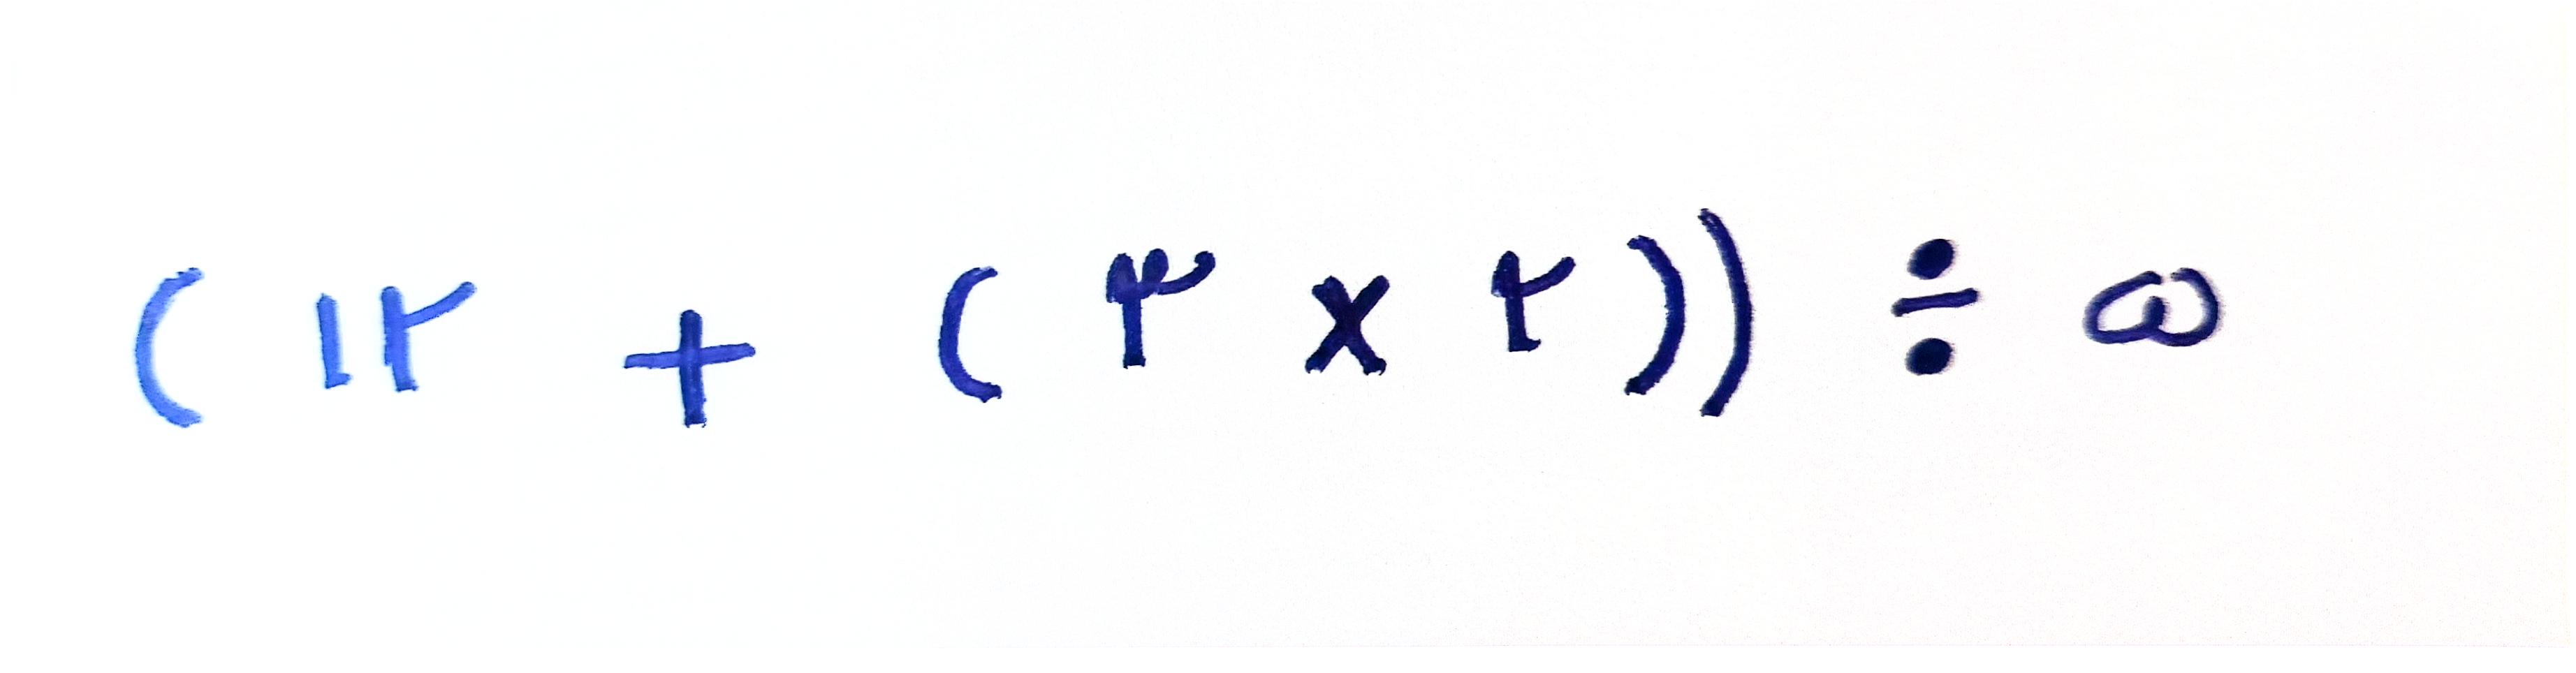 ( ۱۲ + ( ۳ × ۲ )) ÷ ۵